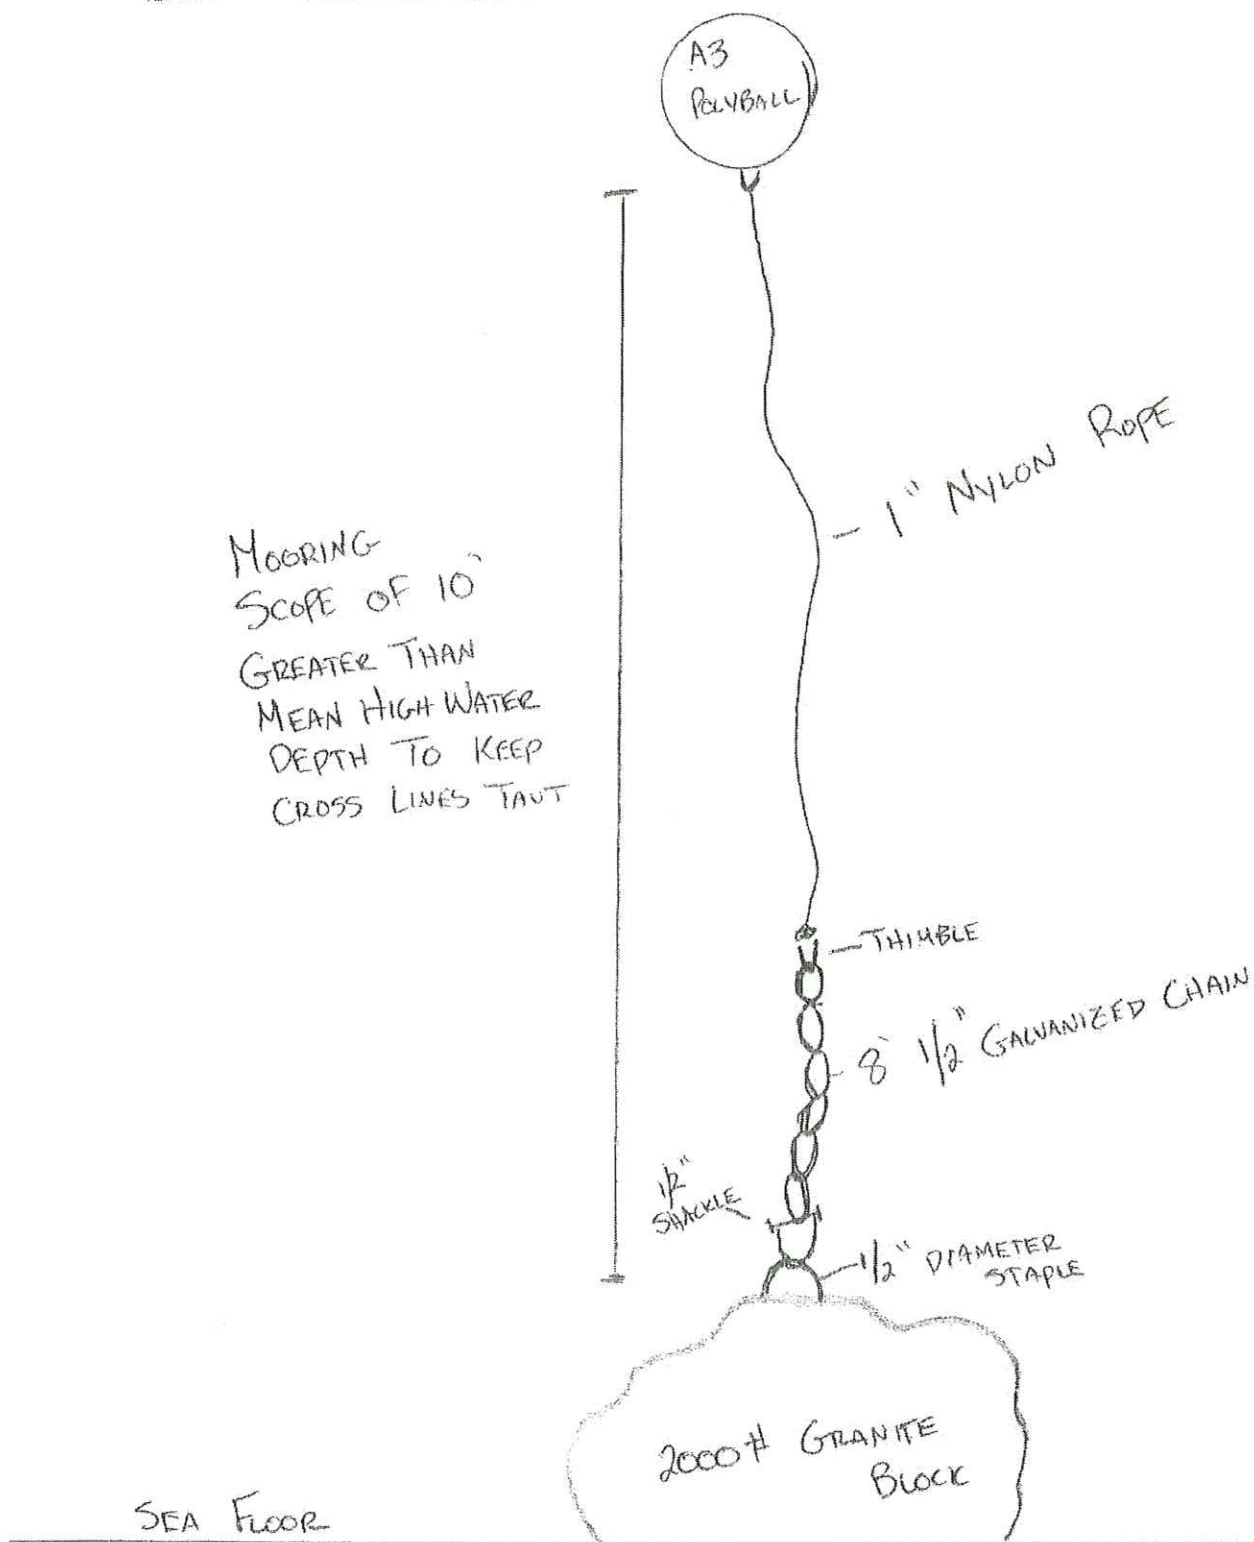 A3
POLYBALL
1" NYLON ROPE
MOORING
SCOPE OF 10'
GREATER THAN
MEAN HIGH WATER
DEPTH TO KEEP
CROSS LINES TAUT
THIMBLE
8' 1/2" GALVANIZED CHAIN
1/2"
SHACKLE
1/2" DIAMETER
STAPLE
2000# GRANITE
BLOCK
SEA FLOOR